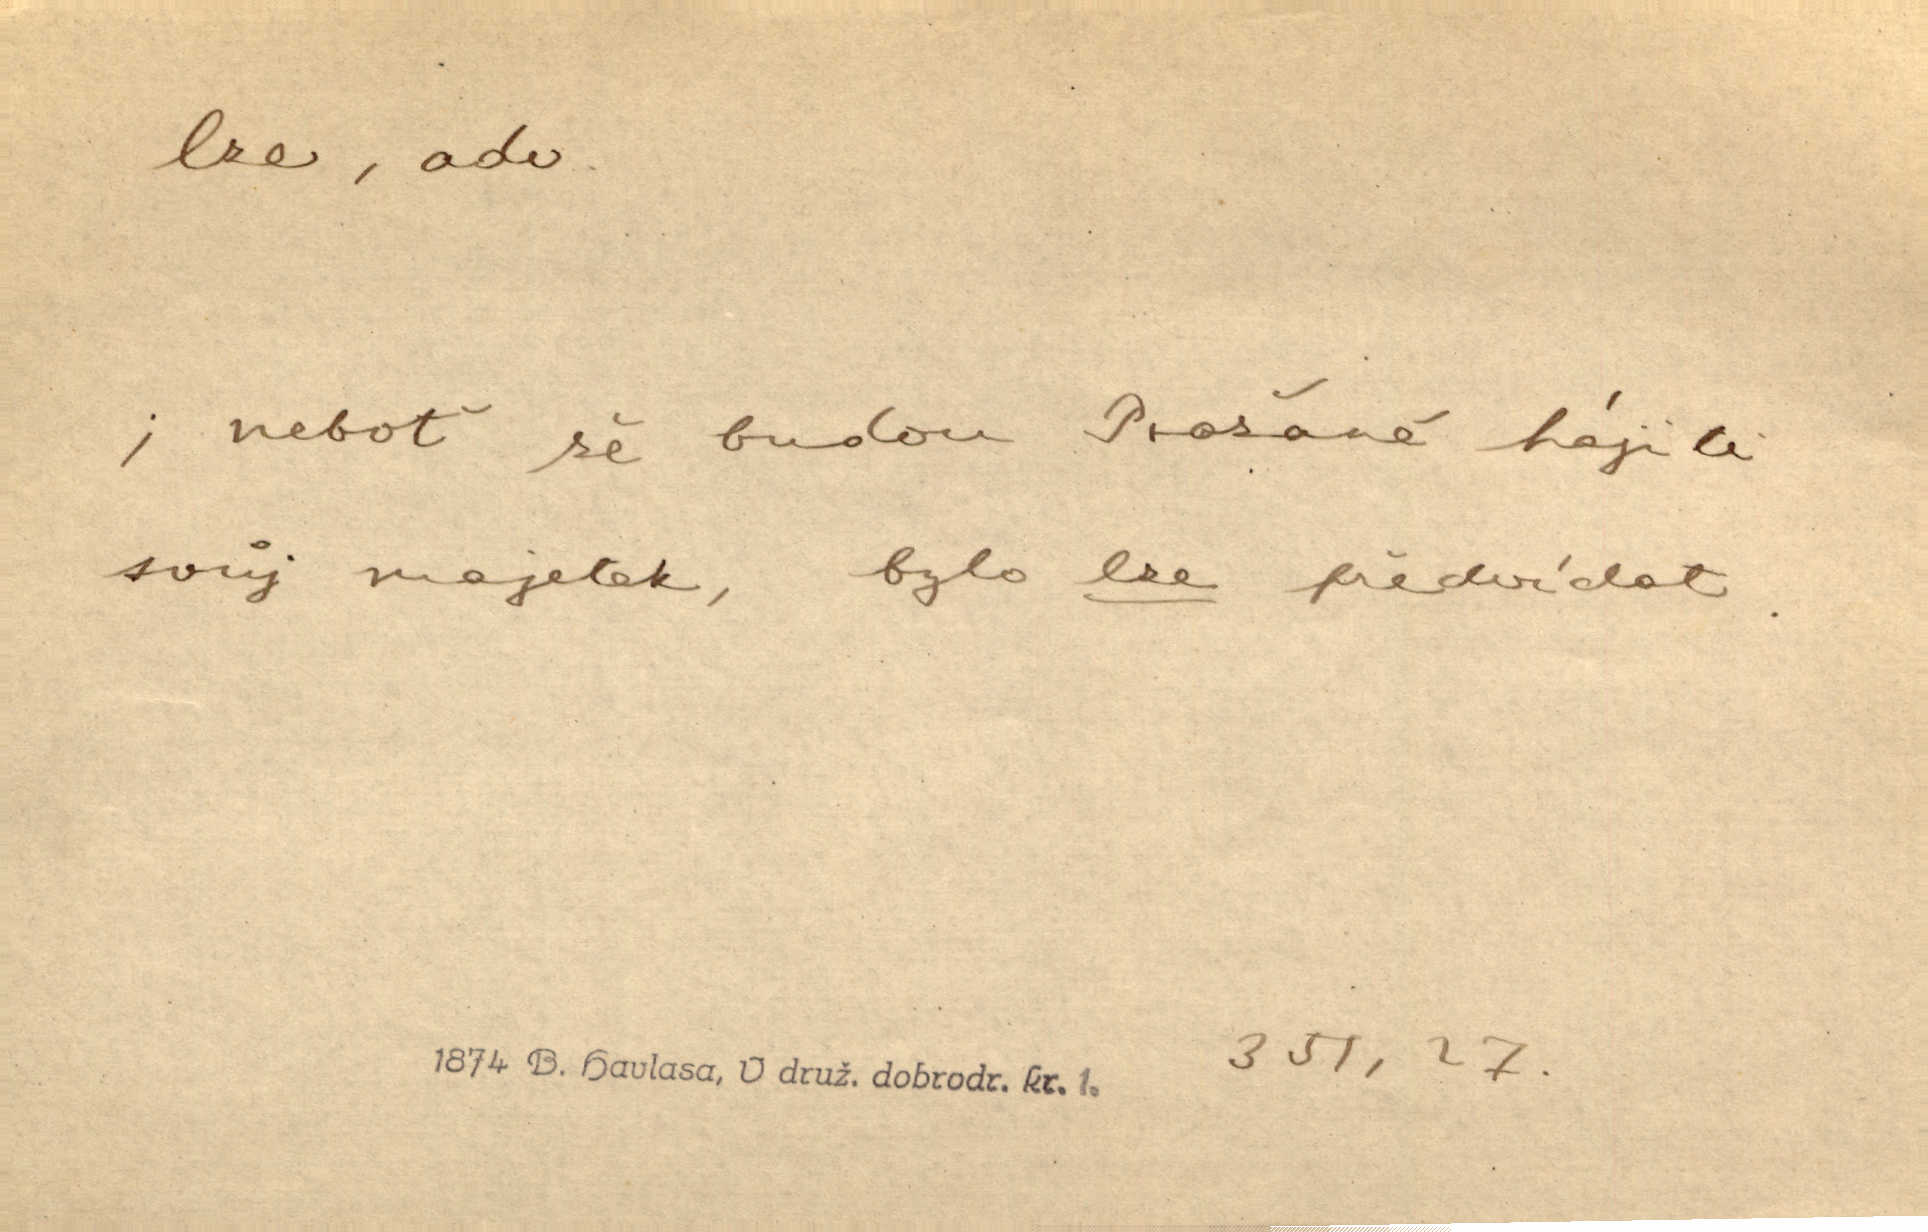 lze, adv.
; neboť že budou Pražané hájiti
svůj majetek, bylo lze předvídat.
1874 B. Havlasa, V druž. dobrodr. kr. 1. 351, 27.